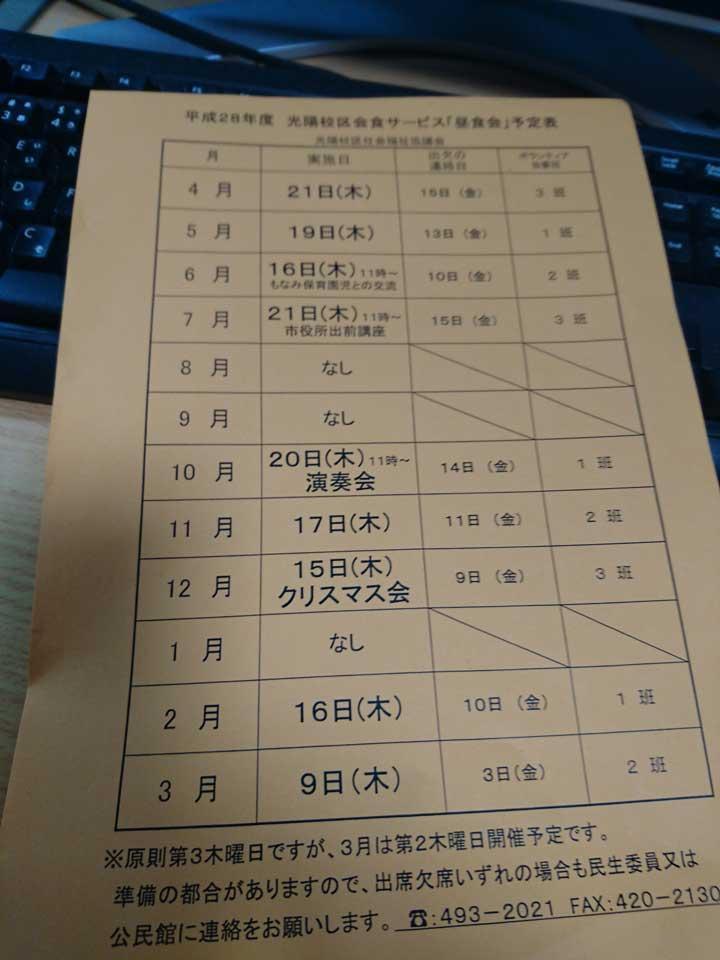 平成28年度 光陽校区会食サービス「昼食会」予定表
光陽校区社会福祉協議会
月 実施日 出欠の連絡日 ボランティア
4 月 21日(木) 15日(金) 3 班
5 月 19日(木) 13日(金) 1 班
6 月 16日(木)11時～ 10日(金) 2 班
もなみ保育園児との交流
7 月 21日(木)11時～ 15日(金) 3 班
市役所出前講座
8 月 なし
9 月 なし
10 月 20日(木)11時～ 14日(金) 1 班
演奏会
11 月 17日(木) 11日(金) 2 班
12 月 15日(木) 9日(金) 3 班
クリスマス会
1 月 なし
2 月 16日(木) 10日(金) 1 班
3 月 9日(木) 3日(金) 2 班
※原則第3木曜日ですが、3月は第2木曜日開催予定です。
準備の都合がありますので、出席欠席いずれの場合も民生委員又は
公民館に連絡をお願いします。☎:493-2021 FAX:420-2130